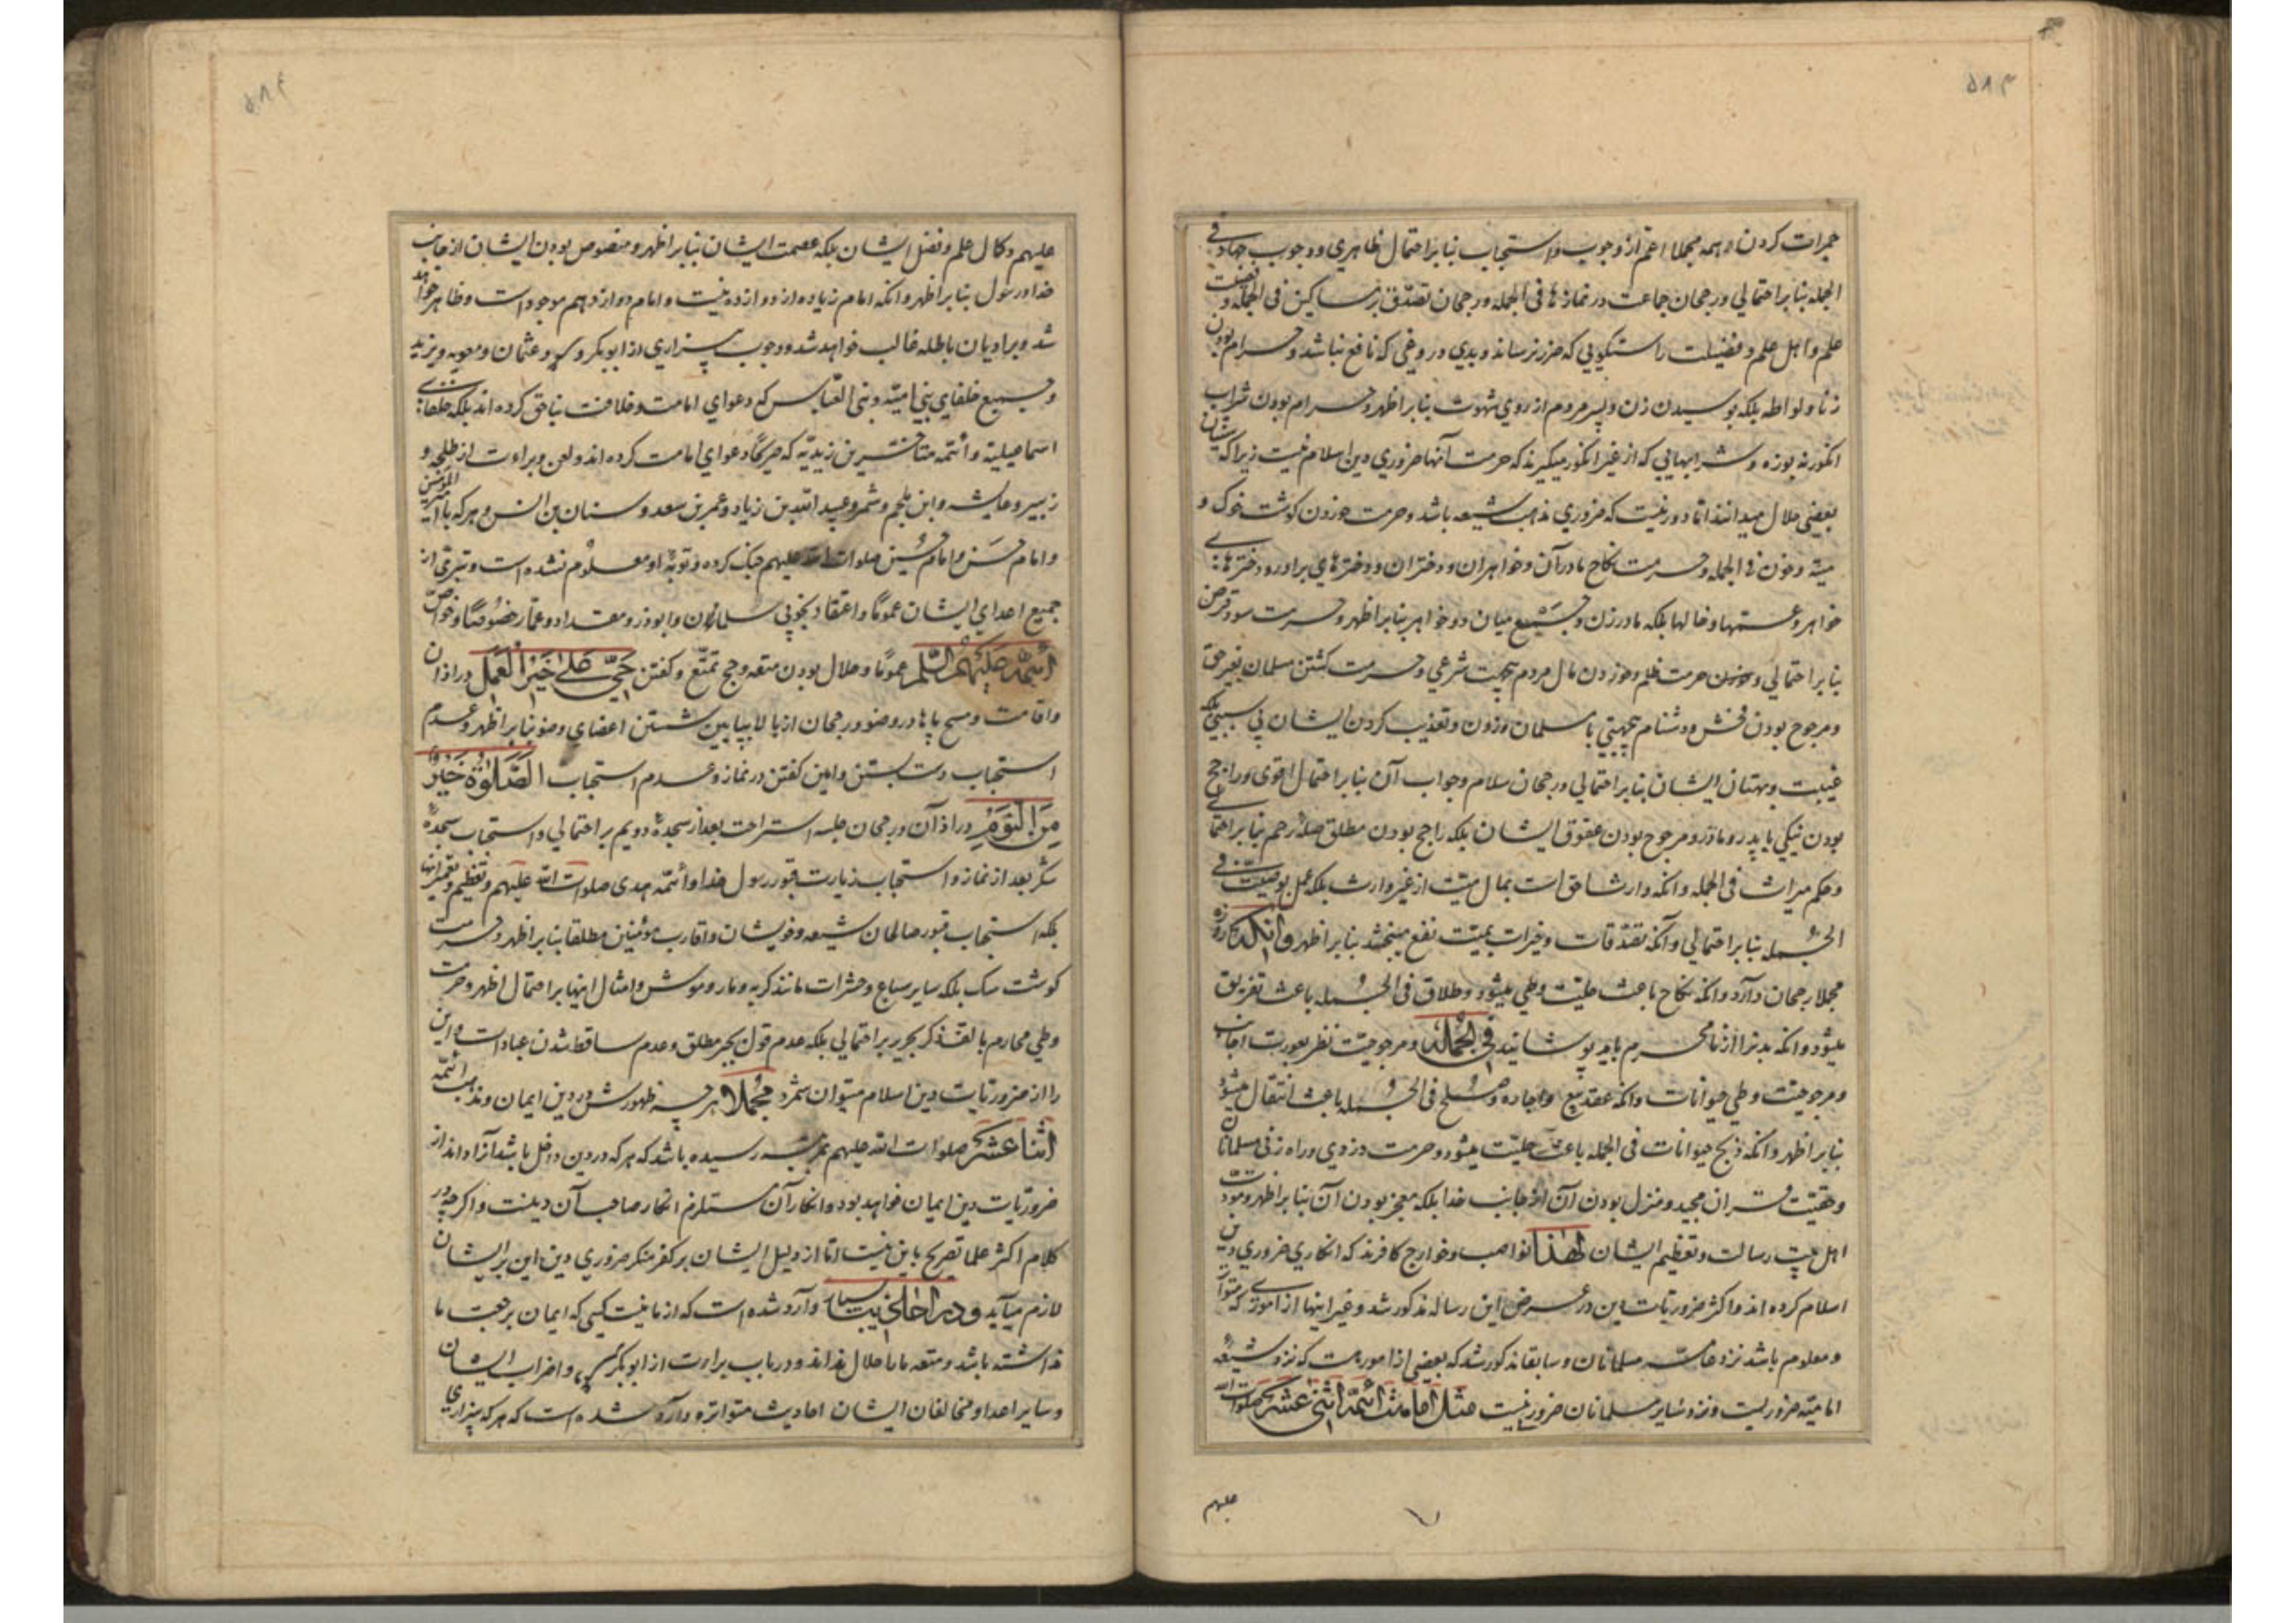 ۵۸۳
جمرات کردن و همه مجملا اعم از وجوب و استحباب بنابر احتمال ظاهری و وجوب جهاد فی
الجمله بنابر احتمالی و رجحان جماعت در نمازها فی الجمله و رجحان تصدق بر مساکین فی الجمله و فضیلت
علم و اهل علم و فضیلت راستگویی که ضرر نرساند و بدی دروغی که نافع نباشد و حرام بودن
زنا و لواطه بلکه بوسیدن زن و پسر مردم از روی شهوت بنابر اظهر و حرام بودن شراب
انگور نه بوزه و شرابهایی که از غیر انگور میگیرند که حرمت آنها ضروری دین اسلام نیست زیرا که سنیان
بعضی حلال میدانند اما دور نیست که ضروری مذهب شیعه باشد و حرمت خوردن گوشت خوک و
میته و خون فی الجمله و حرمت نکاح مادران و خواهران و دختران و دخترهای برادر و دخترهای
خواهر و عمتها و خالها بلکه مادرزن و جمع میان دو خواهر بنابر اظهر و حرمت سود قرض
بنابر احتمالی و حرمت ظلم و خوردن مال مردم بیجهت شرعی و حرمت کشتن مسلمان بغیر حق
و مرجوح بودن فحش و دشنام بیجهتی با مسلمان و زدن و تعذیب کردن ایشان بی سببی بلکه
غیبت و بهتان ایشان بنابر احتمالی و رجحان سلام و جواب آن بنابر احتمال اقوی و راجح
بودن نیکی با پدر و مادر و مرجوح بودن عقوق ایشان بلکه راجح بودن مطلق صله رحم بنابر احتمالی
و حکم میراث فی الجمله و آنکه وارث احق است بمال میت از غیر وارث بلکه عمل بوصیت فی
الجمله بنابر احتمالی و آنکه تصدقات و خیرات بمیت نفع میبخشد بنابر اظهر و آنکه روزه
مجملا رجحان دارد و آنکه نکاح باعث حلیت وطی میشود و طلاق فی الجمله باعث تفریق
میشود و آنکه بدنرا از نامحرم باید پوشانید فی الجمله و مرجوحیت نظر بعورت اجانب
و مرجوحیت وطی حیوانات و آنکه عقد بیع و اجاره و صلح فی الجمله باعث انتقال میشود
بنابر اظهر و آنکه ذبح حیوانات فی الجمله باعث حلیت میشود و حرمت دزدی و راه زنی مسلمانان
و حقیت قران مجید و منزل بودن آن از جانب خدا بلکه معجز بودن آن بنابر اظهر و مودت
اهل بیت رسالت و تعظیم ایشان لهذا نواصب و خوارج کافرند که انکار ضروری دین
اسلام کرده اند و اکثر ضروریات دین در عرض این رساله مذکور شد و غیر اینها از اموری که متواتر
و معلوم باشد نزد عامه مسلمانان و سابقا مذکور شد که بعضی از امور هست که نزد شیعه
امامیه ضروریست و نزد سایر مسلمانان ضرور نیست مثل امامت ائمه اثنی عشر صلوات الله
علیهم
۵۸۴
علیهم و کمال علم و فضل ایشان بلکه عصمت ایشان بنابر اظهر و منصوص بودن ایشان از جانب
خدا و رسول بنابر اظهر و آنکه امام زیاده از دوازده نیست و امام دوازدهم موجود است و ظاهر خواهد
شد و بر ادیان باطله غالب خواهد شد و وجوب بیزاری از ابوبکر و عمر و عثمان و معویه و یزید
و جمیع خلفای بنی امیه و بنی العباس که دعوای امامت و خلافت بناحق کرده اند بلکه خلفای
اسماعیلیه و ائمه متاخرین زیدیه که صریحا دعوای امامت کرده اند و لعن و براءت از طلحه و
زبیر و عایشه و ابن ملجم و شمر و عبید الله بن زیاد و عمر بن سعد و سنان بن انس و هر که با امیر المؤمنین
و امام حسن و امام حسین صلوات الله علیهم جنگ کرده و توبه او معلوم نشده است و تبری از
جمیع اعدای ایشان عموما و اعتقاد بخوبی سلمان و ابوذر و مقداد و عمار خصوصا و خواص
ائمه علیهم السلم عموما و حلال بودن متعه و حج تمتع و گفتن حی علی خیر العمل در اذان
و اقامت و مسح پاها در وضو و رجحان از بالا بپایین شستن اعضای وضو بنابر اظهر و عدم
استحباب دست بستن و امین گفتن در نماز و عدم استحباب الصلوة خیر
من النوم در اذان و رجحان جلسه استراحت بعد از سجده دویم بر احتمالی و استحباب سجده
شکر بعد از نماز و استحباب زیارت قبور رسول خدا و ائمه هدی صلوات الله علیهم و تعظیم و تعمیر آنها
بلکه استحباب قبور صالحان شیعه و خویشان و اقارب مؤمنین مطلقا بنابر اظهر و حرمت
گوشت سک بلکه سایر سباع و حشرات مانند گربه و مار و موش و امثال اینها بر احتمال اظهر و حرمت
وطی محارم با لف ذکر بحریر بر احتمالی بلکه عدم قول بجبر مطلق و عدم ساقط شدن عبادات و این
را از ضروریات دین اسلام میتوان شمرد مجملا هر چه ظهورش در دین ایمان و مذهب ائمه
اثنا عشر صلوات الله علیهم بمرتبه رسیده باشد که هر که در دین داخل باشد آنرا داند از
ضروریات دین ایمان خواهد بود و انکار آن مستلزم انکار صاحب آن دینست و اگرچه در
کلام اکثر علما تصریح باین نیست اما از دلیل ایشان بر کفر منکر ضروری دین این بر ایشان
لازم میآید و در احادیث بسیار وارد شده است که از ما نیست کسی که ایمان برجعت ما
نداشته باشد و متعه ما را حلال نداند و در باب براءت از ابوبکر و عمر و اضراب ایشان
و سایر اعدا و مخالفان ایشان احادیث متواتره وارد شده است که هر که بیزاری